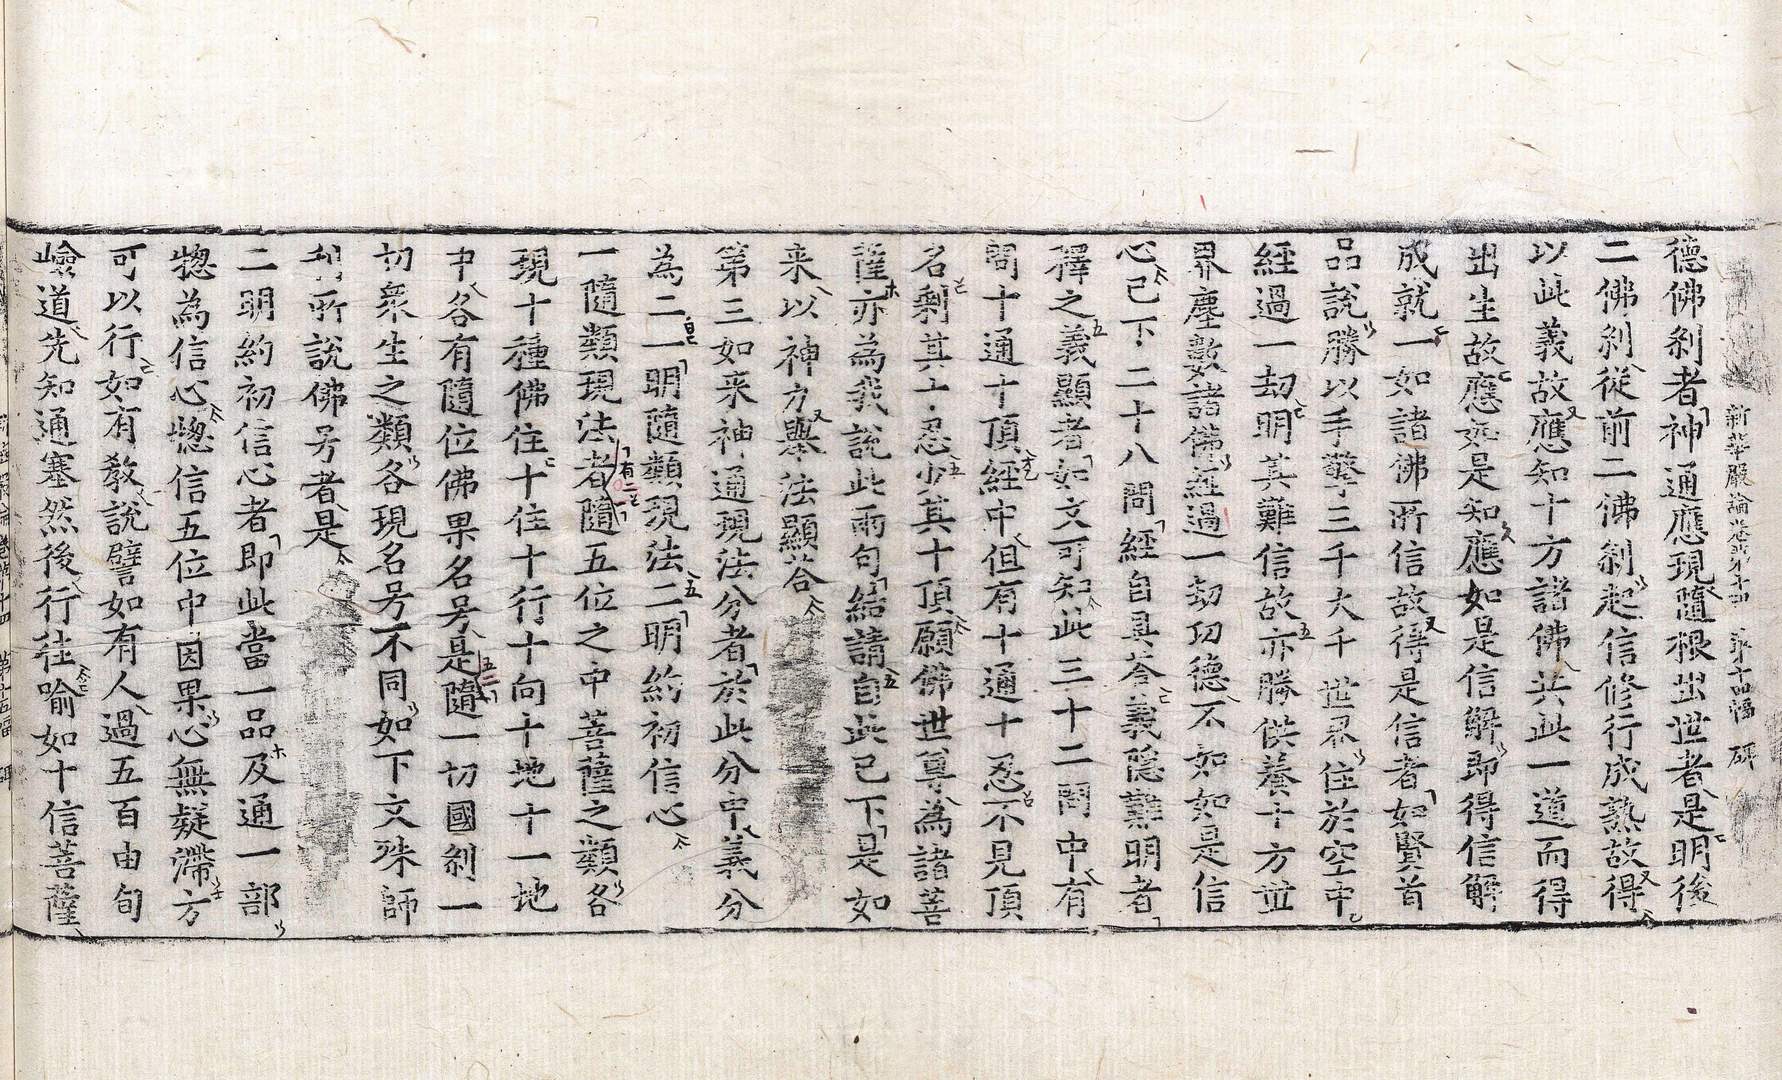 新華嚴論卷第十四 第十四幅 𥓓
德佛刹者神通應現隨根出世者是明後
二佛刹從前二佛刹起信修行成熟故得
以此義故應知十方諸佛共此一道而得
出生故應如是知應如是信解即得信解
成就一如諸佛所信故得是信者如賢首
品說勝以手擎三千大千世界住於空中
經過一劫明其難信故亦勝供養十方並
界塵數諸佛經過一劫功德不如如是信
心已下二十八問經自具荅義隱難明者
釋之義顯者如文可知此三十二問中有
問十通十頂經中但有十通十忍不見頂
名剩其十忍少其十頂願佛世尊為諸菩
薩亦為我說此兩句結請自此已下是如
来以神力舉法顯荅
第三如来神通現法分者於此分中義分
為二一明隨類現法二明約初信心
一隨類現法者隨五位之中菩薩之類各
現十種佛住十住十行十向十地十一地
中各有隨位佛果名号是隨一切國刹一
切衆生之類各現名号不同如下文殊師
利所說佛号者是
二明約初信心者即此當一品及通一部
惣為信心惣信五位中因果心無疑滯方
可以行如有教說譬如有人過五百由旬
嶮道先知通塞然後行往喻如十信菩薩